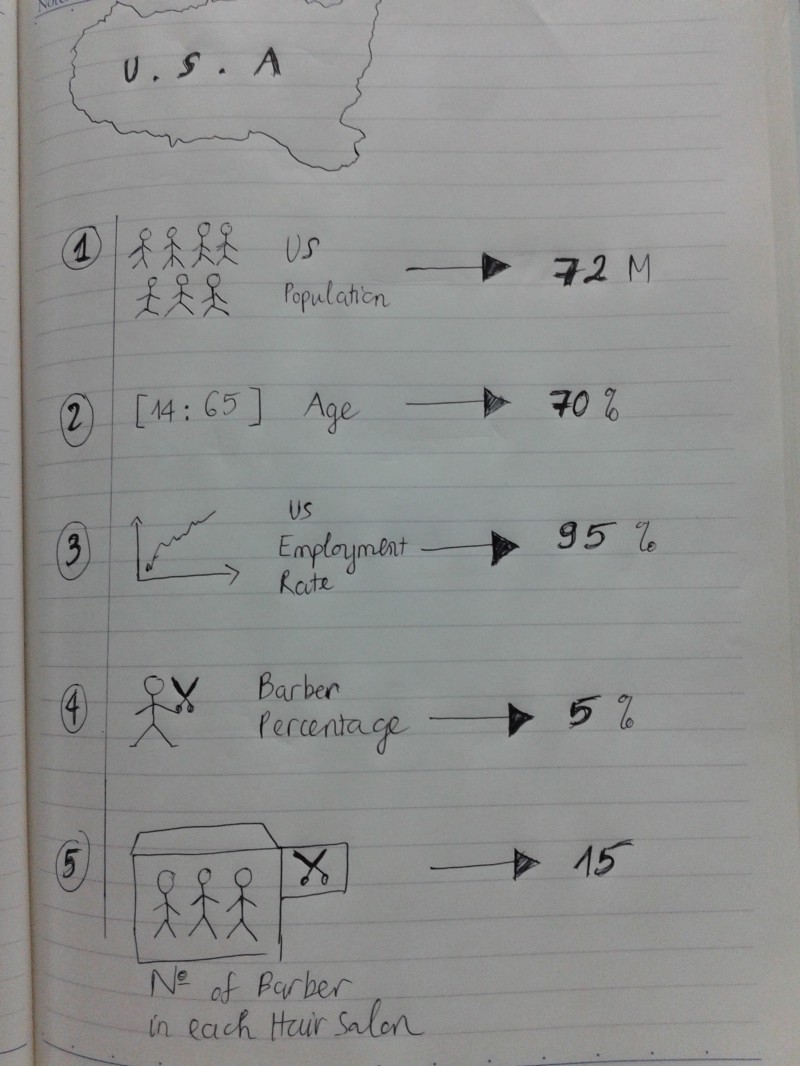 U.S.A
1 US
Population 72 M
2 [14: 65] Age 70 %
3 US
Employment 95 %
Rate
4 Barber
Percentage 5 %
5 15
Nº of Barber
in each Hair Salon